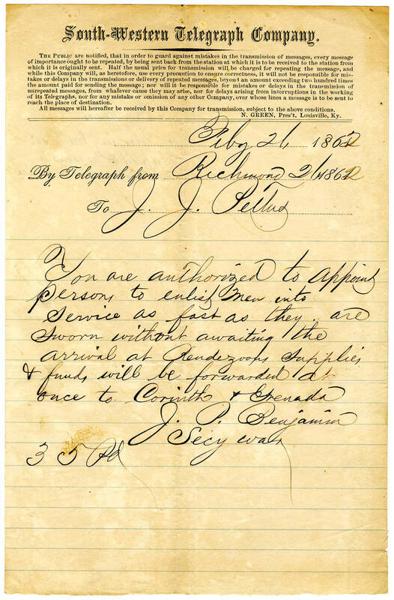 South-Western Telegraph Company.
THE PUBLIC are notified, that in order to guard against mistakes in the transmission of messages, every message
of importance ought to be repeated, by being sent back from the station at which it is to be received to the station from
which it is originally sent. Half the usual price for transmission will be charged for repeating the message, and
while this Company will, as heretofore, use every precaution to ensure correctness, it will not be responsible for mis-
takes or delays in the transmission or delivery of repeated messages, beyond an amount exceeding two hundred times
the amount paid for sending the message; nor will it be responsible for mistakes or delays in the transmission of
unrepeated messages, from whatever cause they may arise, nor for delays arising from interruptions in the working
of its Telegraphs, nor for any mistake or omission of any other Company, over whose lines a message is to be sent to
reach the place of destination.
All messages will hereafter be received by this Company for transmission, subject to the above conditions.
N. GREEN, Pres't, Louisville, Ky.
Feby 26 1862
By Telegraph from Richmond 26 1862
To J. J. Pettus
You are authorized to appoint
persons to enlist men into
service as fast as they are
sworn without awaiting the
arrival at Rendezvous supplies
& funds will be forwarded at
once to Corinth & Grenada
J. P. Benjamin
Secy war
35 Pd